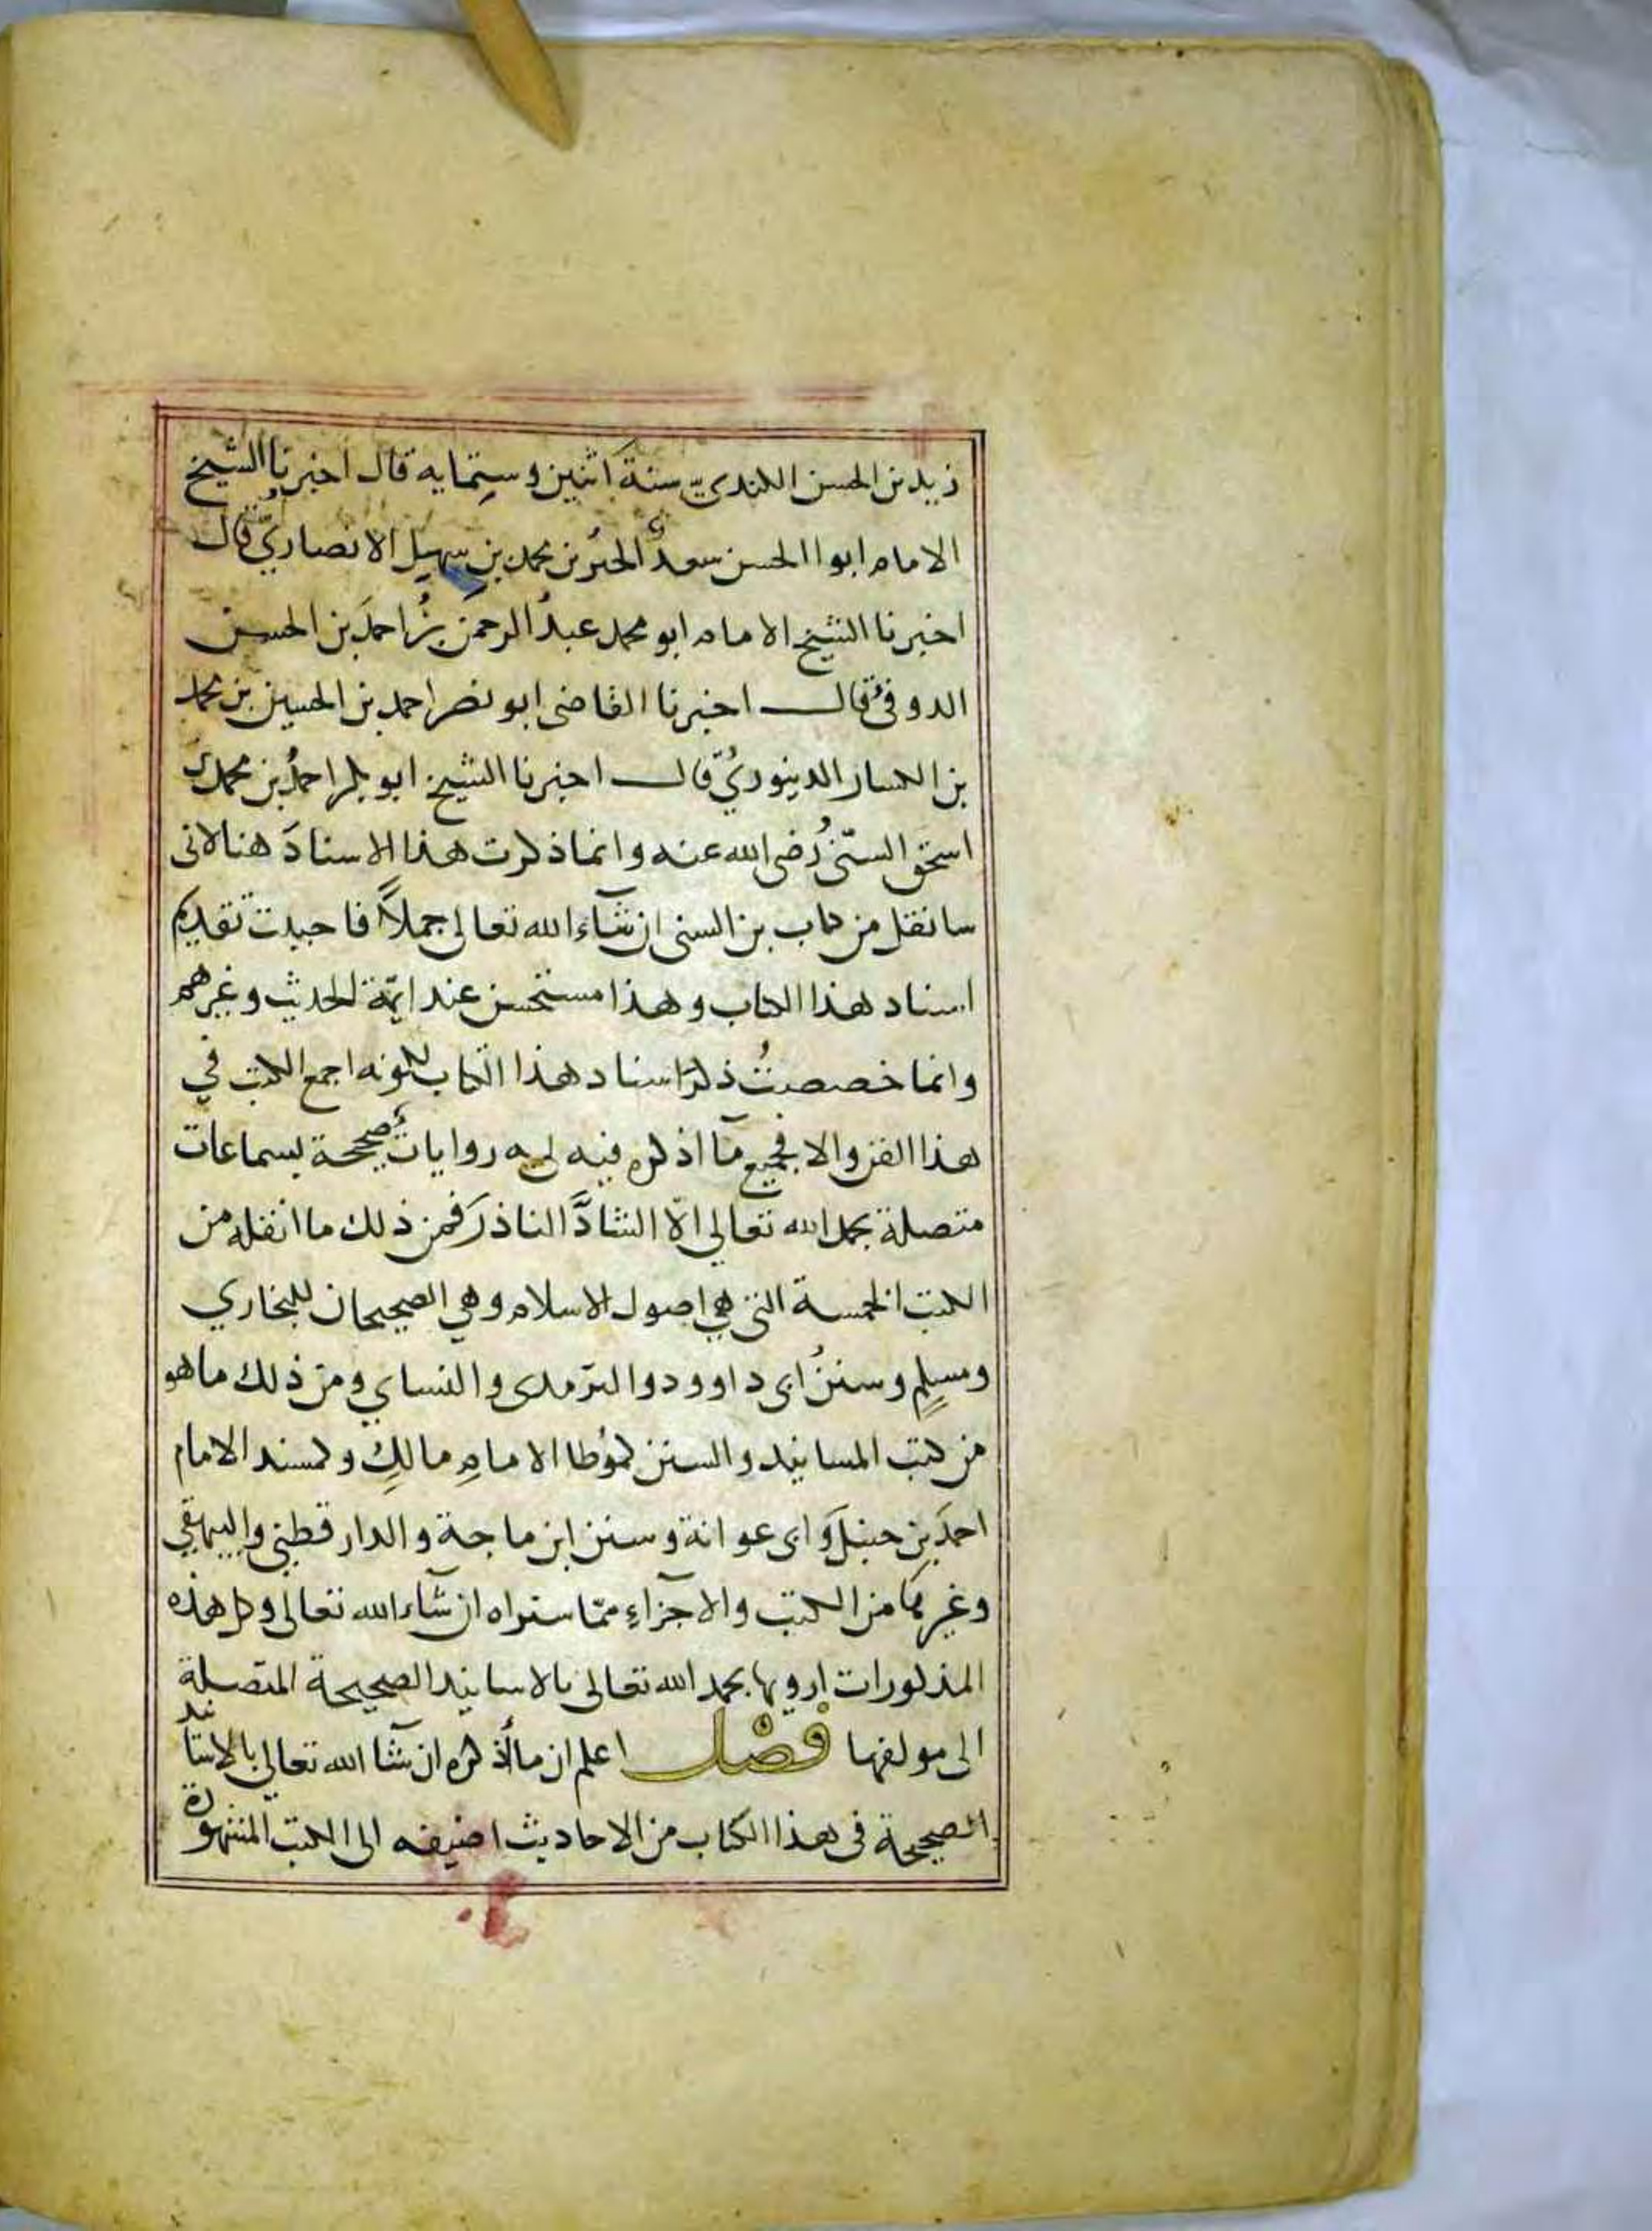 زيد بن الحسن الكنديّ سنة اثنين وستمايه قال اخبرنا الشيخ
الامام ابوا الحسن سعدُ الخير بن محمد بن سهيل الانصاريّ قال
اخبرنا الشيخ الامام ابو محمد عبدُ الرحمن بنُ احمدَ بن الحسن
الدوفىُ قال اخبرنا القاضى ابو نصر احمد بن الحسين بن محمد
بن الكسار الدينوريُّ قال اخبرنا الشيخ ابو بكر احمدُ بن محمد بن
اسحق السنّىُ رضى الله عنه وانما ذكرت هذا الاسنادَ هنا لانى
سانقل من كتاب بن السنى ان شآء الله تعالى جملاً فاحببت تقديم
اسناد هذا الكتاب وهذا مستحسن عند ايمّة الحديث وغيرهم
وانما خصصتُ ذكرَ اسناد هذا الكتاب لكونه اجمع الكتب في
هذا الفن والا فجميع مآ اذكره فيه لى به روايات صحيحة بسماعات
متصلة بحمد الله تعالى الاّ الشاذَّ الناذرَ فمن ذلك ما انقله من
الكتب الخمسة التى هي اصول الاسلام وهي الصحيحان للبخاري
ومسلمٍ وسننُ ابى داوود والترمدى والنساي ومن ذلك ما هو
من كتب المسانيد والسنن لموُطا الامامِ مالكِ ولمسند الامام
احمدَ بن حنبلَ وابى عوانة وسنن ابن ماجة والدار قطنى والبيهقي
وغيرها من الكتب والاجزآءِ ممّا ستراه ان شآء الله تعالى وكل هذه
المذكورات ارويها بحمد الله تعالى بالاسانيد الصحيحة المتصلة
الى مولفها فصْل اعلم ان ما أذكره ان شآ الله تعالي بالاسانيد
الصحيحة فى هذا الكتاب من الاحاديث اضيفه الى الكتب المشهورة